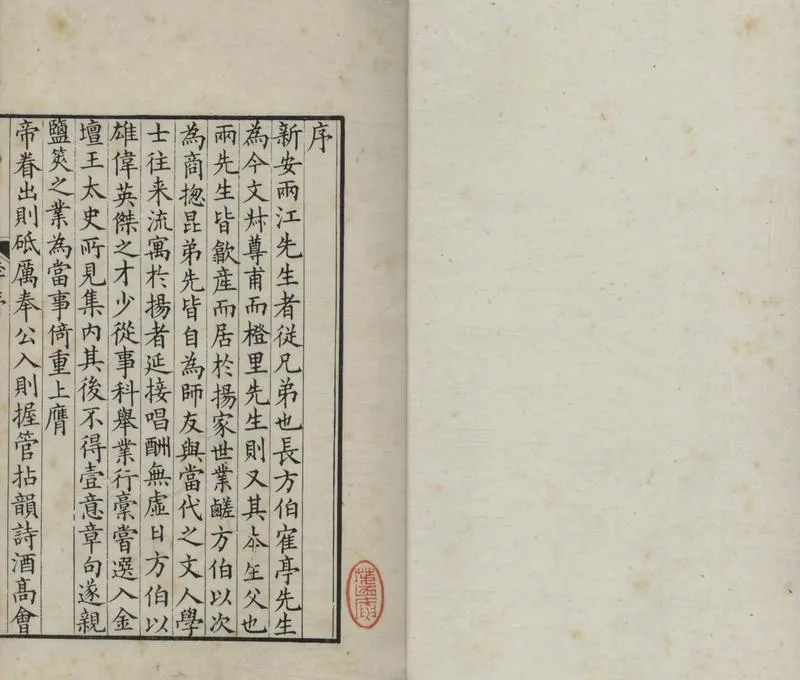 序
新安兩江先生者從兄弟也長方伯寉亭先生
為今文叔尊甫而橙里先生則又其本生父也
兩先生皆歙産而居於揚家世業鹺方伯以次
為商揔昆弟先皆自為師友與當代之文人學
士往来流寓於揚者延接唱酬無虛日方伯以
雄偉英傑之才少從事科舉業行稾嘗選入金
壇王太史所見集內其後不得壹意章句遂親
鹽筴之業為當事倚重上膺
帝眷出則砥厲奉公入則握管拈韻詩酒高會